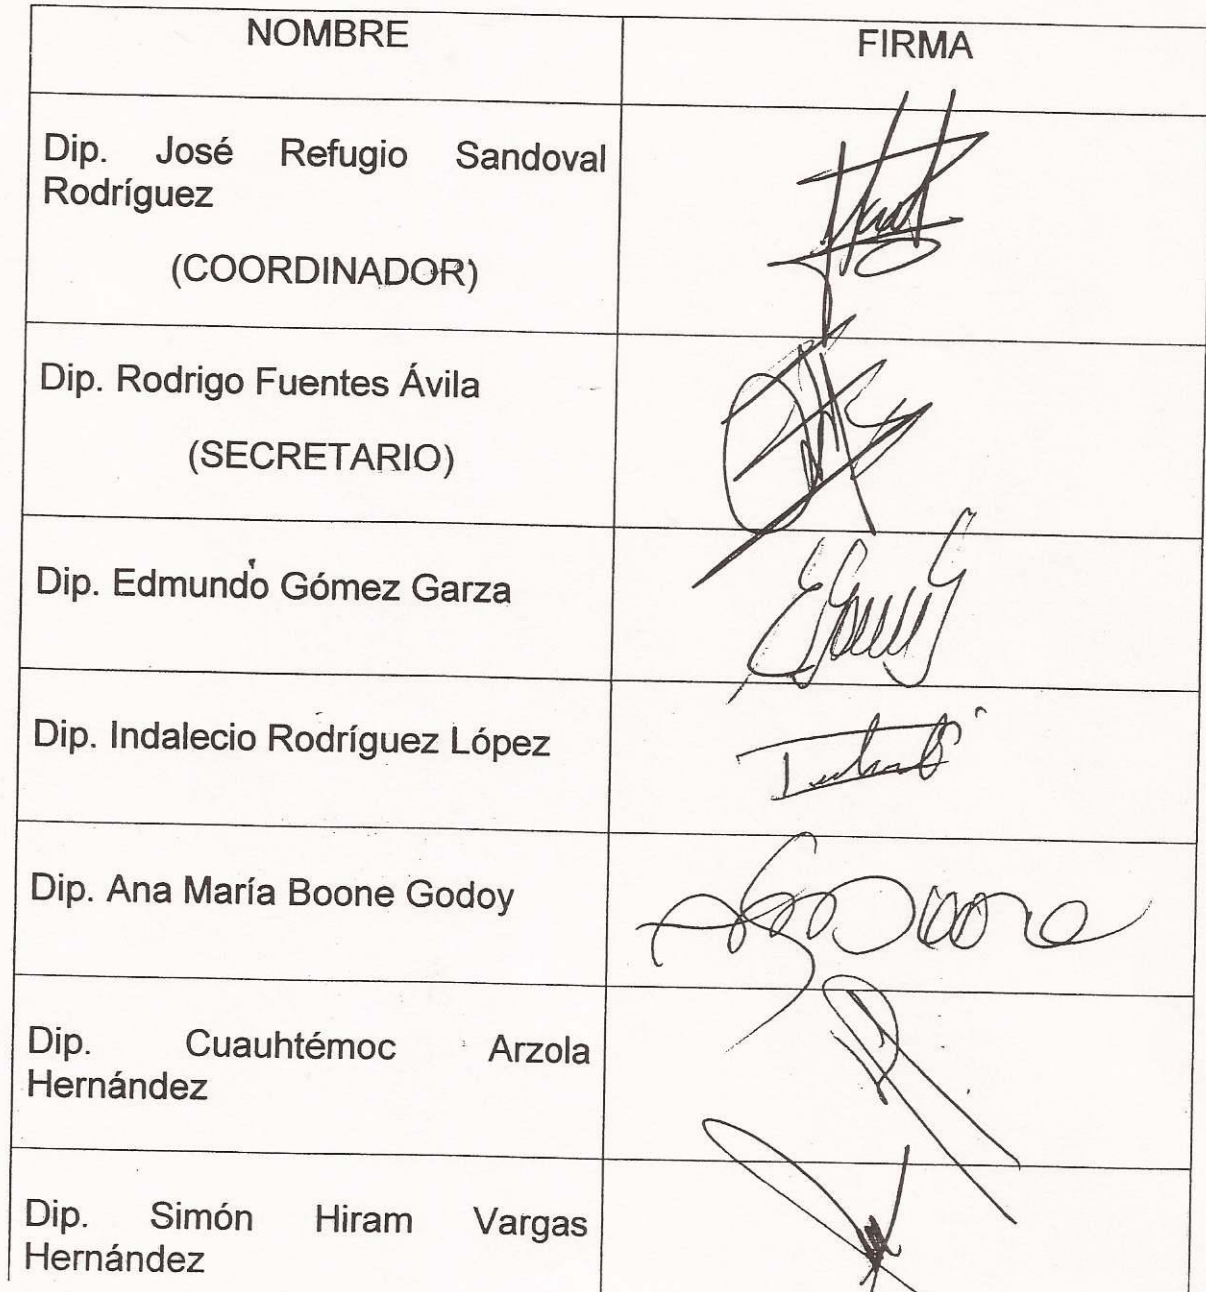 NOMBRE
FIRMA
Dip. José Refugio Sandoval
Rodríguez
(COORDINADOR)
Dip. Rodrigo Fuentes Ávila
(SECRETARIO)
Dip. Edmundo Gómez Garza
Dip. Indalecio Rodríguez López
Dip. Ana María Boone Godoy
Dip. Cuauhtémoc Arzola
Hernández
Dip. Simón Hiram Vargas
Hernández